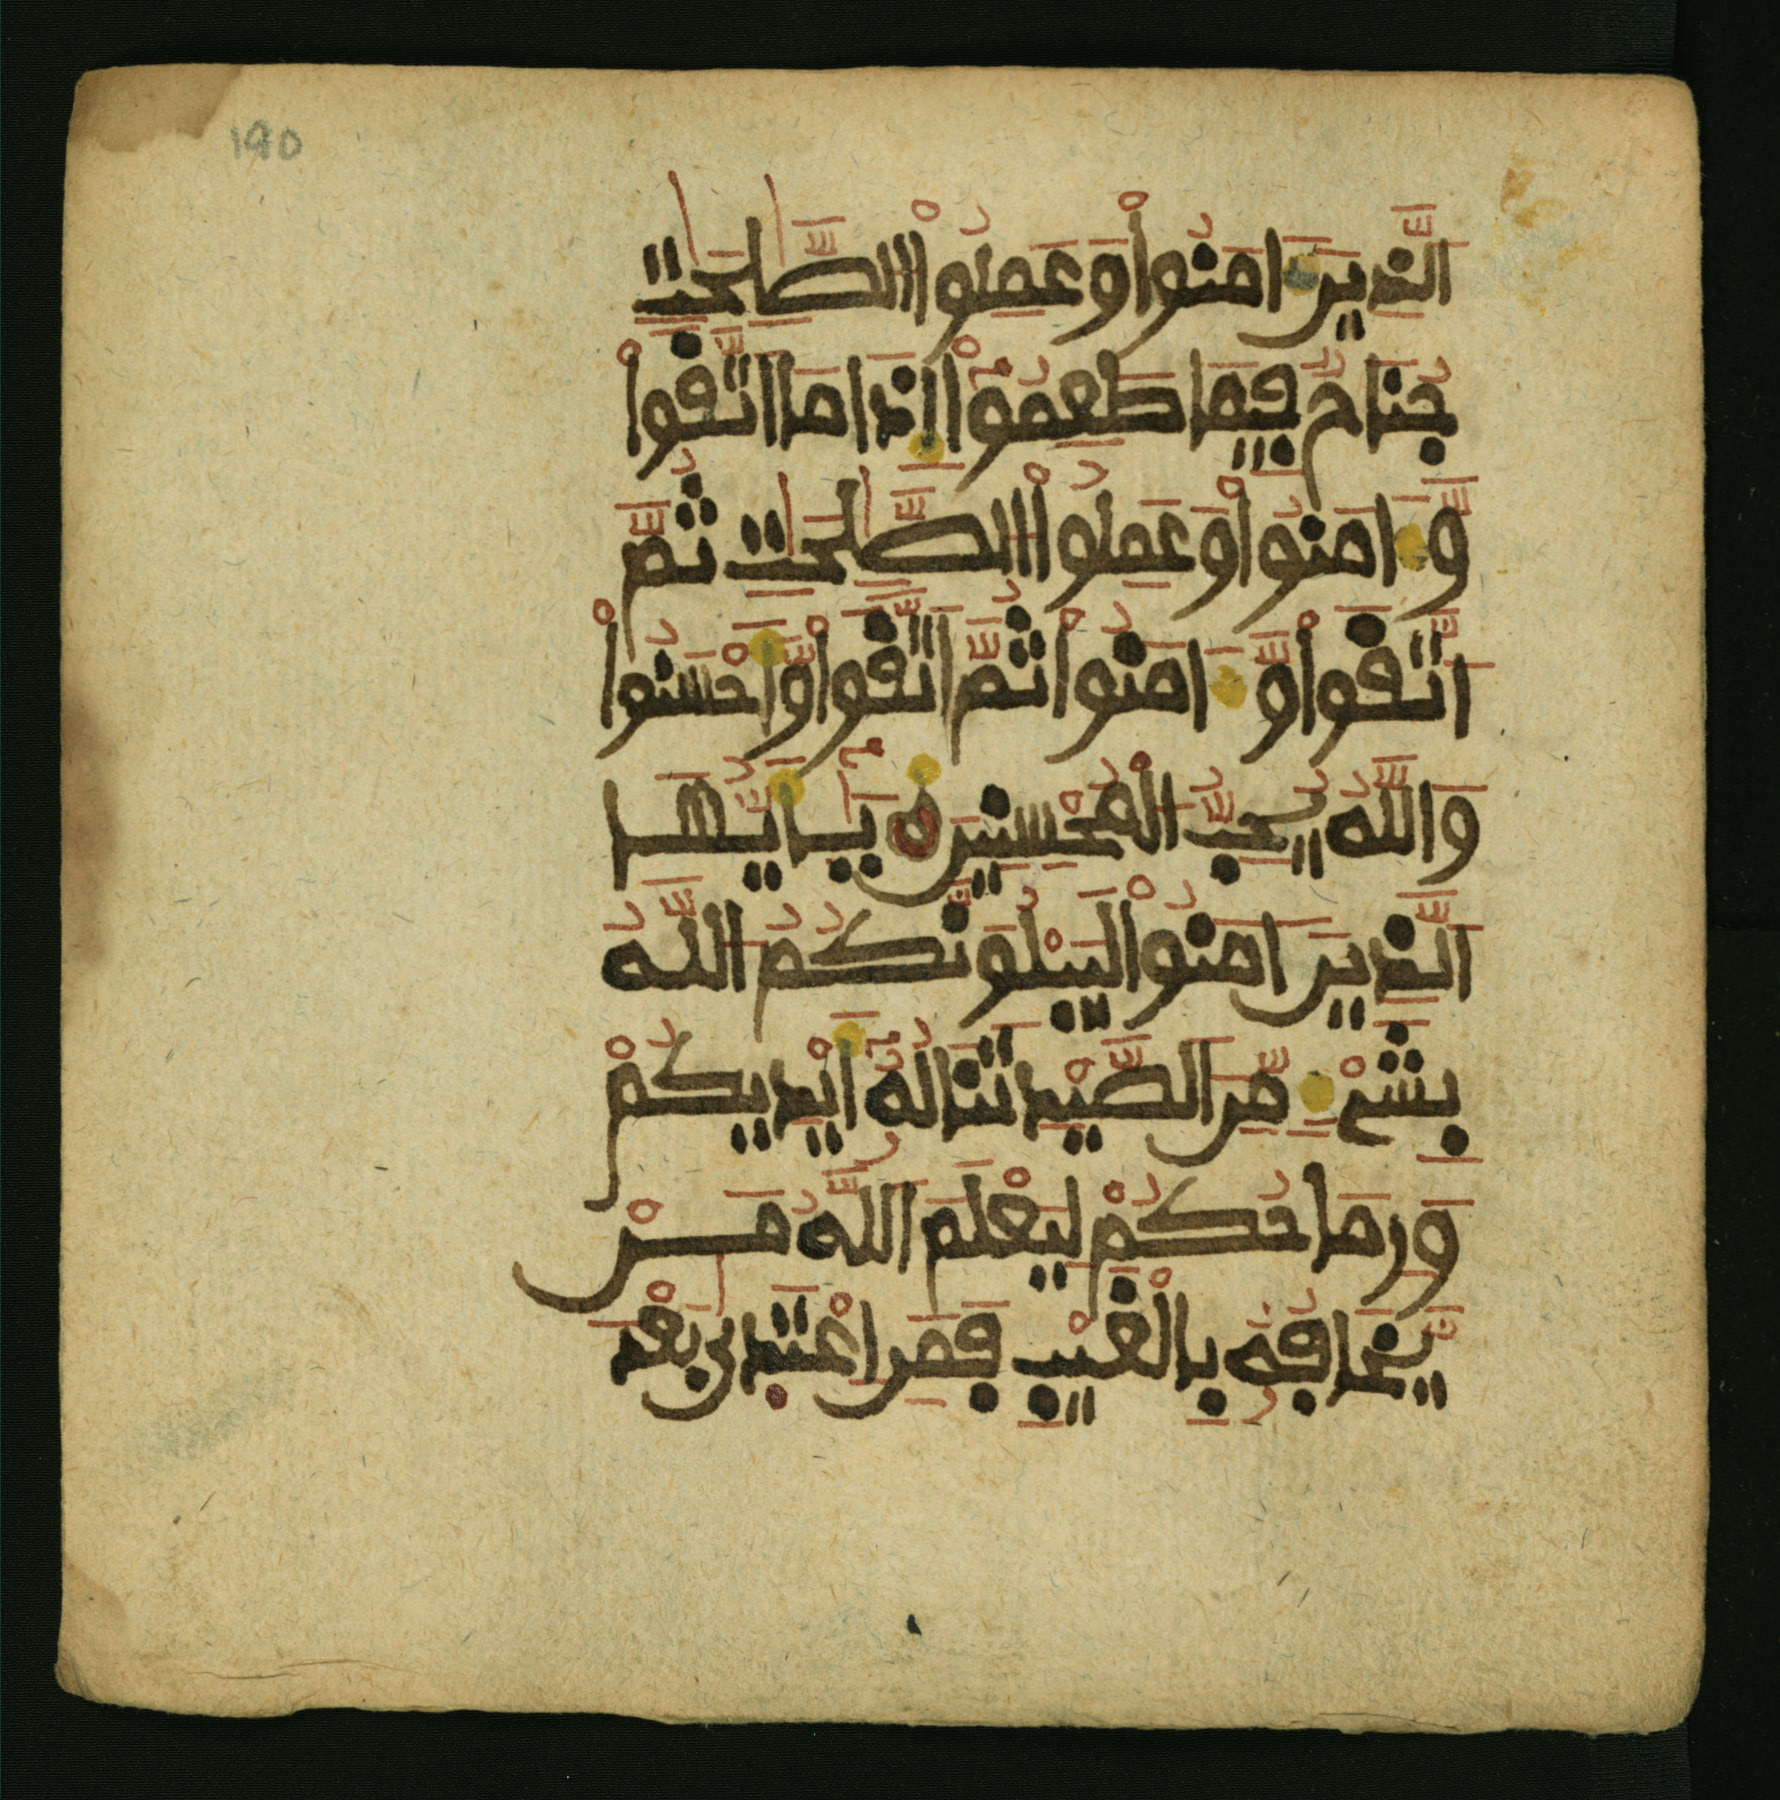 190
الَّذِينَ ءَامَنُواْ وَعَمِلُواْ الصَّٰلِحَٰتِ
جُنَاحٌ فِيمَا طَعِمُوٓاْ إِذَا مَا اتَّقَواْ
وَّءَامَنُواْ وَعَمِلُواْ الصَّٰلِحَٰتِ ثُمَّ
اتَّقَواْ وَّءَامَنُواْ ثُمَّ اتَّقَواْ وَّأَحْسَنُواْ
وَاللَّهُ يُحِبُّ الْمُحْسِنِينَ يَٰٓأَيُّهَا
الَّذِينَ ءَامَنُواْ لَيَبْلُوَنَّكُمُ اللَّهُ
بِشَيْءٍ مِّنَ الصَّيْدِ تَنَالُهُٓ أَيْدِيكُمْ
وَرِمَاحُكُمْ لِيَعْلَمَ اللَّهُ مَنْ
يَّخَافُهُ بِالْغَيْبِ فَمَنِ اعْتَدَىٰ بَعْدَ